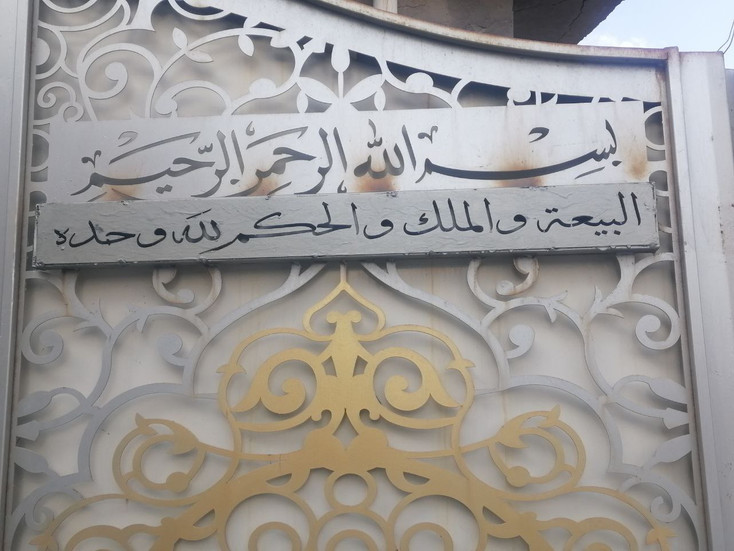 بسم الله الرحمن الرحيم
البيعة والملك والحكم لله وحده